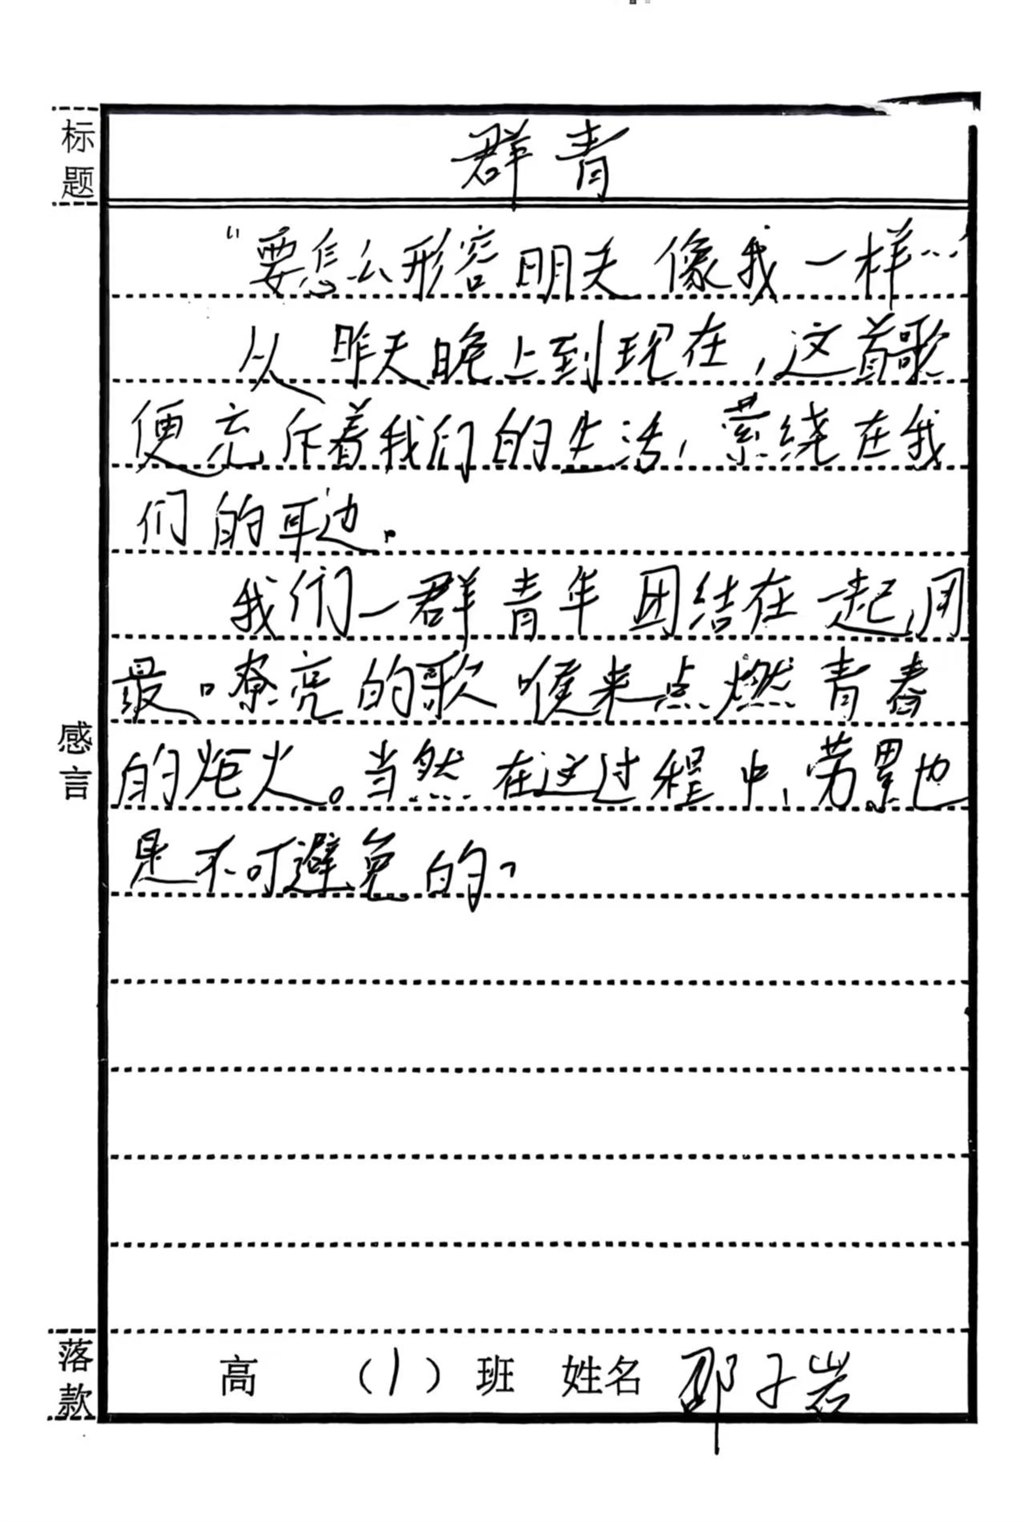 标题
群青
“要怎么形容明天 像我一样…”
从昨天晚上到现在，这首歌
便充斥着我们的生活，萦绕在我
们的耳边。
我们一群青年团结在一起，用
最嘹亮的歌喉来点燃青春
的炬火。当然在这过程中，劳累也
是不可避免的，
感言
落款
高 （1）班 姓名 邵子岩